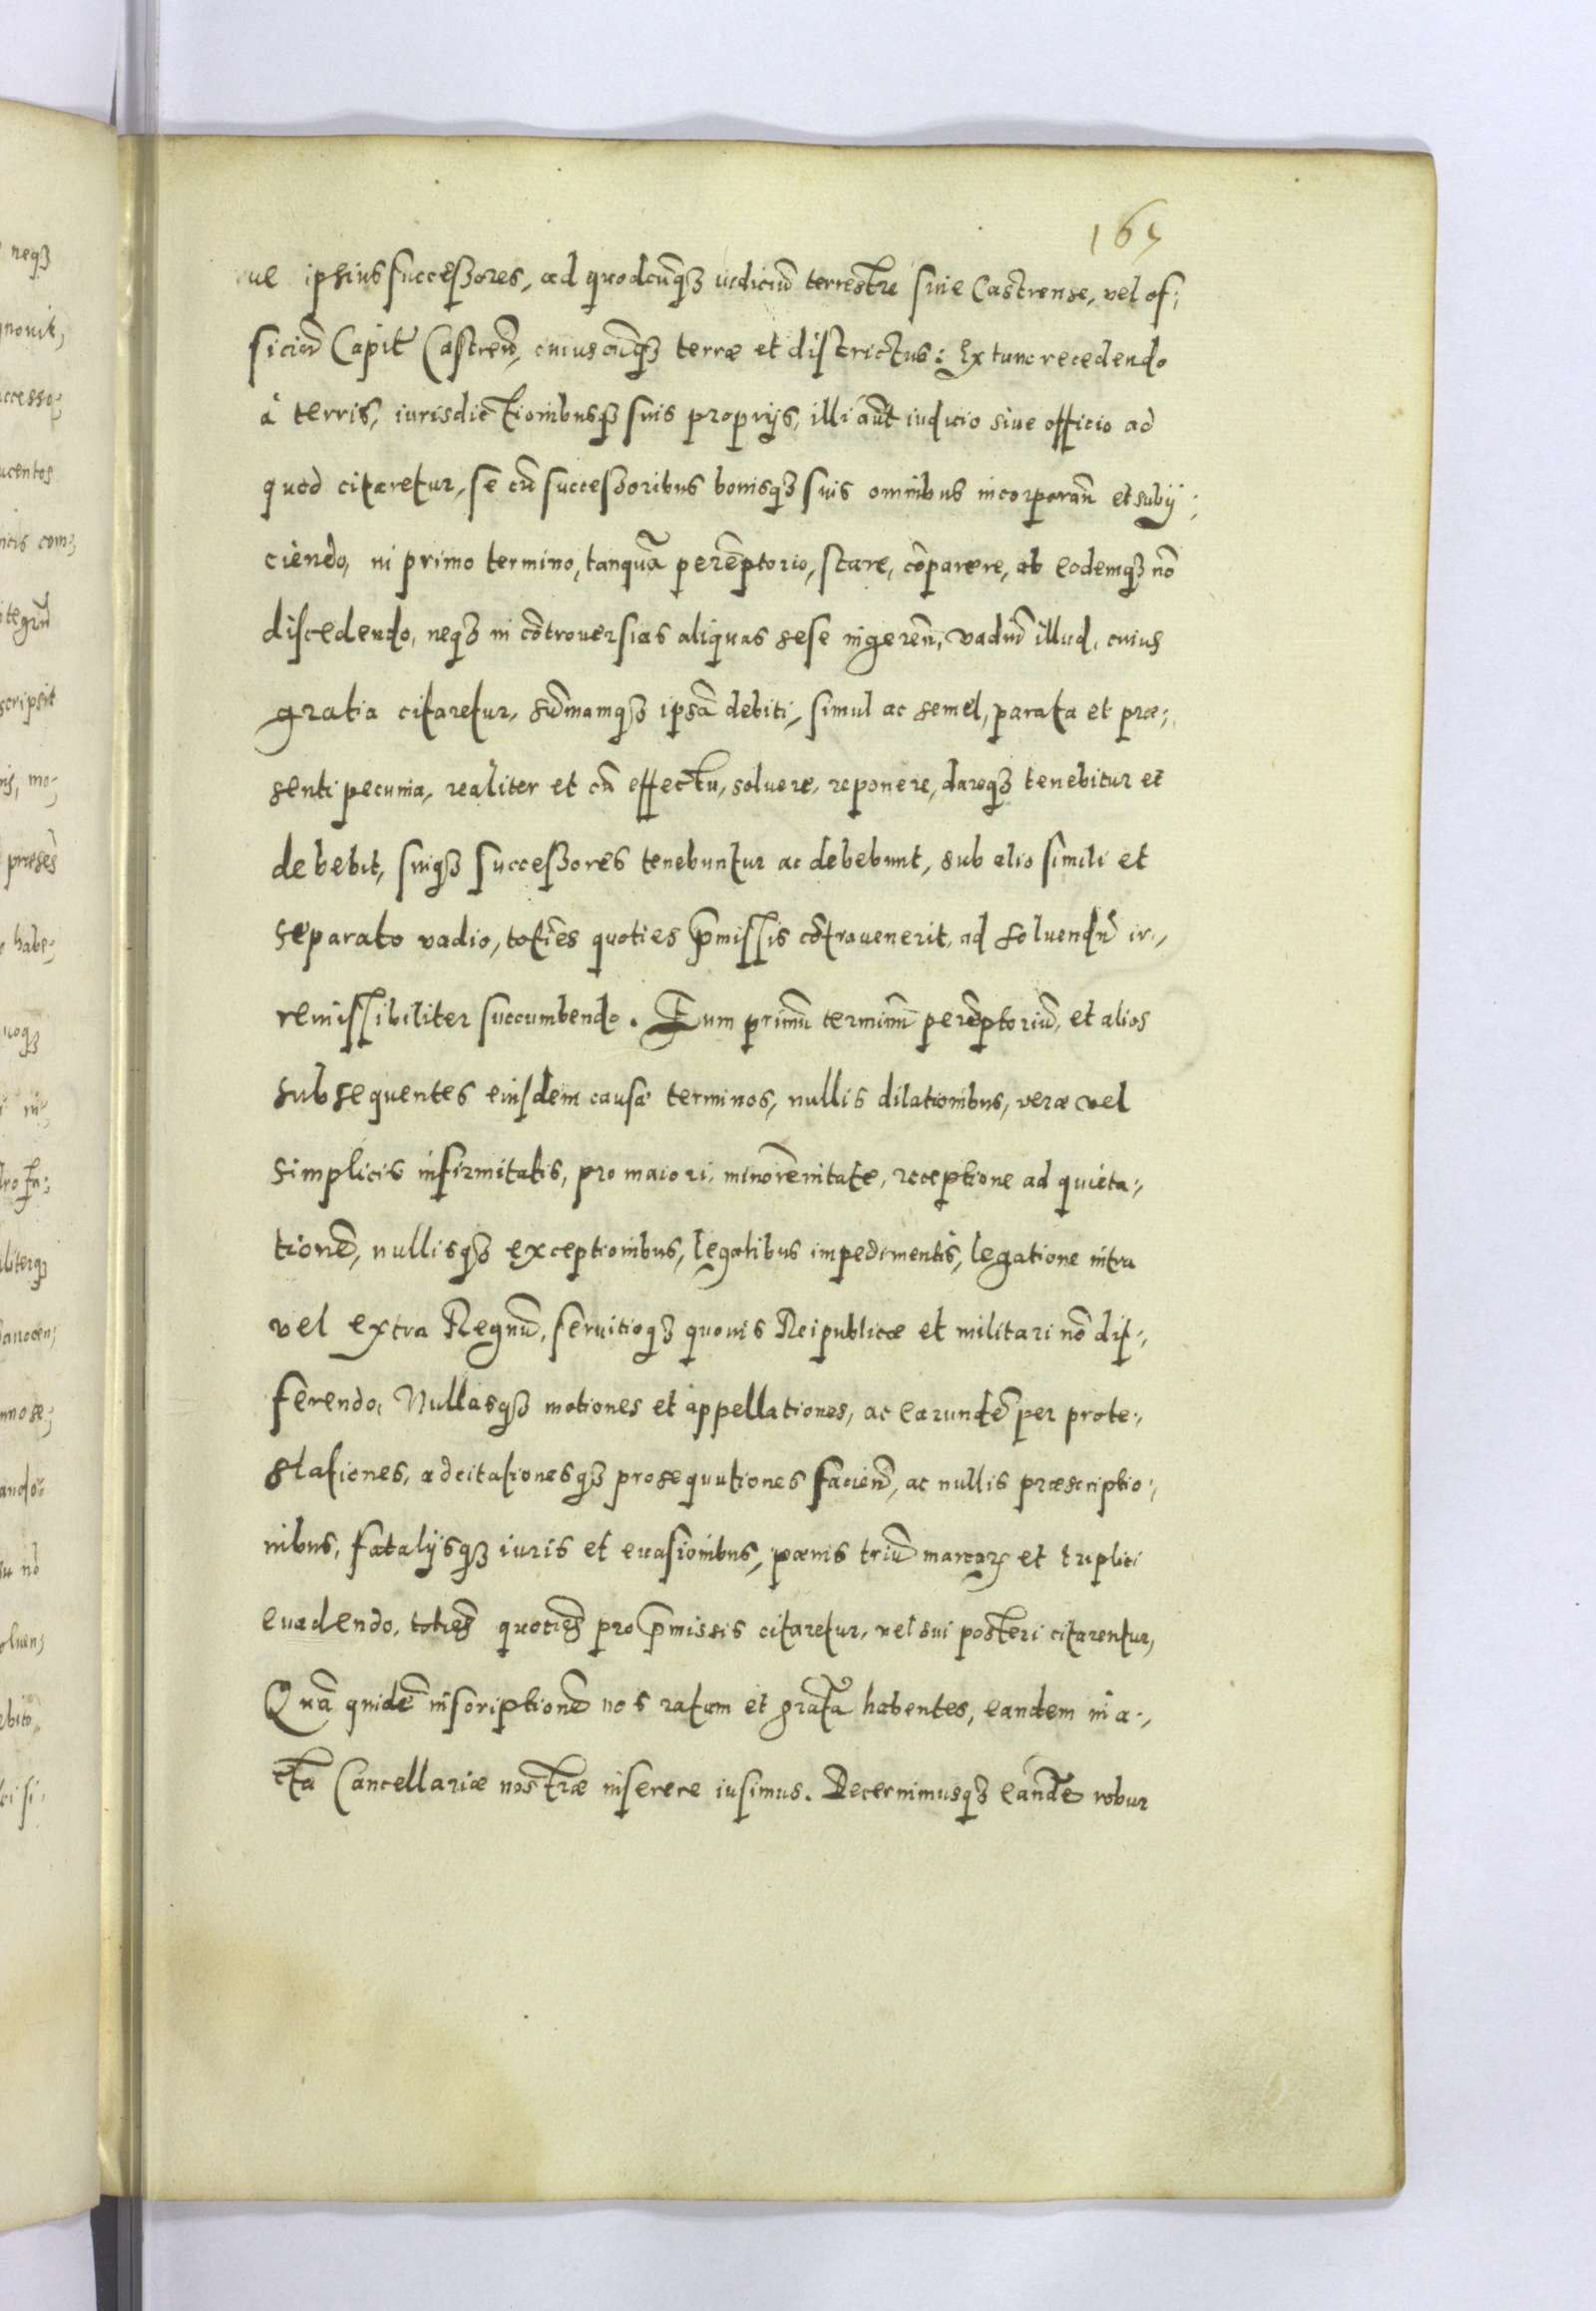 165
ue ipsius successores, ad quodcūqȝ iudiciū terrestre siue Castrense, vel of:
ficiū Capit Castreñ, cuiuscūqȝ terræ et districtus: Ex tunc recedendo
à terris, iurisdictionibusqȝ suis proprijs, illi aūt iudicio siue officio ad
quod citaretur, se cū successoribus bonisqȝ suis omnibus incorporañ et subij:
ciendo, in primo termino, tanquā perēptorio, stare, cōparere, ab eodemqȝ nō
discedendo, neqȝ in cōtrouersias aliquas sese ingereñ, vadiū illud, cuius
gratia citaretur, sūmamqȝ ipsā debiti, simul ac semel, parata et præ:
senti pecunia, realiter et cū effectu, soluere, reponere, dareqȝ tenebitur et
debebit, suiqȝ successores tenebuntur ac debebunt, sub alio simili et
separato vadio, toties quoties p̄missis cōtrauenerit, ad soluendū ir:
remissibiliter succumbendo. Eum primū terminū perēptoriū, et alios
subsequentes eiusdem causæ terminos, nullis dilationibus, veræ vel
simplicis infirmitatis, pro maiori, minorēnitate, receptione ad quieta:
tionē, nullisqȝ exceptionibus, legalibus impedimentis, legatione intra
vel extra Regnū, seruitioqȝ quouis Reipublicæ et militari nō dif:
ferendo, Nullasqȝ motiones et appellationes, ac earundē per prote:
stationes, adcitationesqȝ prosequutiones facieñ, ac nullis præscriptio:
nibus, fatalijsqȝ iuris et euasionibus, pœnis triū marcarꝝ et triplici
euadendo, toties quoties pro p̄missis citaretur, vel sui posteri citarentur,
Quā quidē inscriptionē nos ratam et gratā habentes, eandem in a:
cta Cancellariæ nostræ inserere iusimus. Decernimusqȝ eandē robur